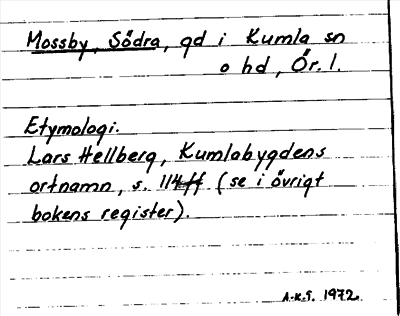 Mossby, Södra, gd i Kumla sn
o hd, Ör. l.
Etymologi.
Lars Hellberg, Kumlabygdens
ortnamn, s. 114ff (se i övrigt
bokens register).
A.K.S. 1972.